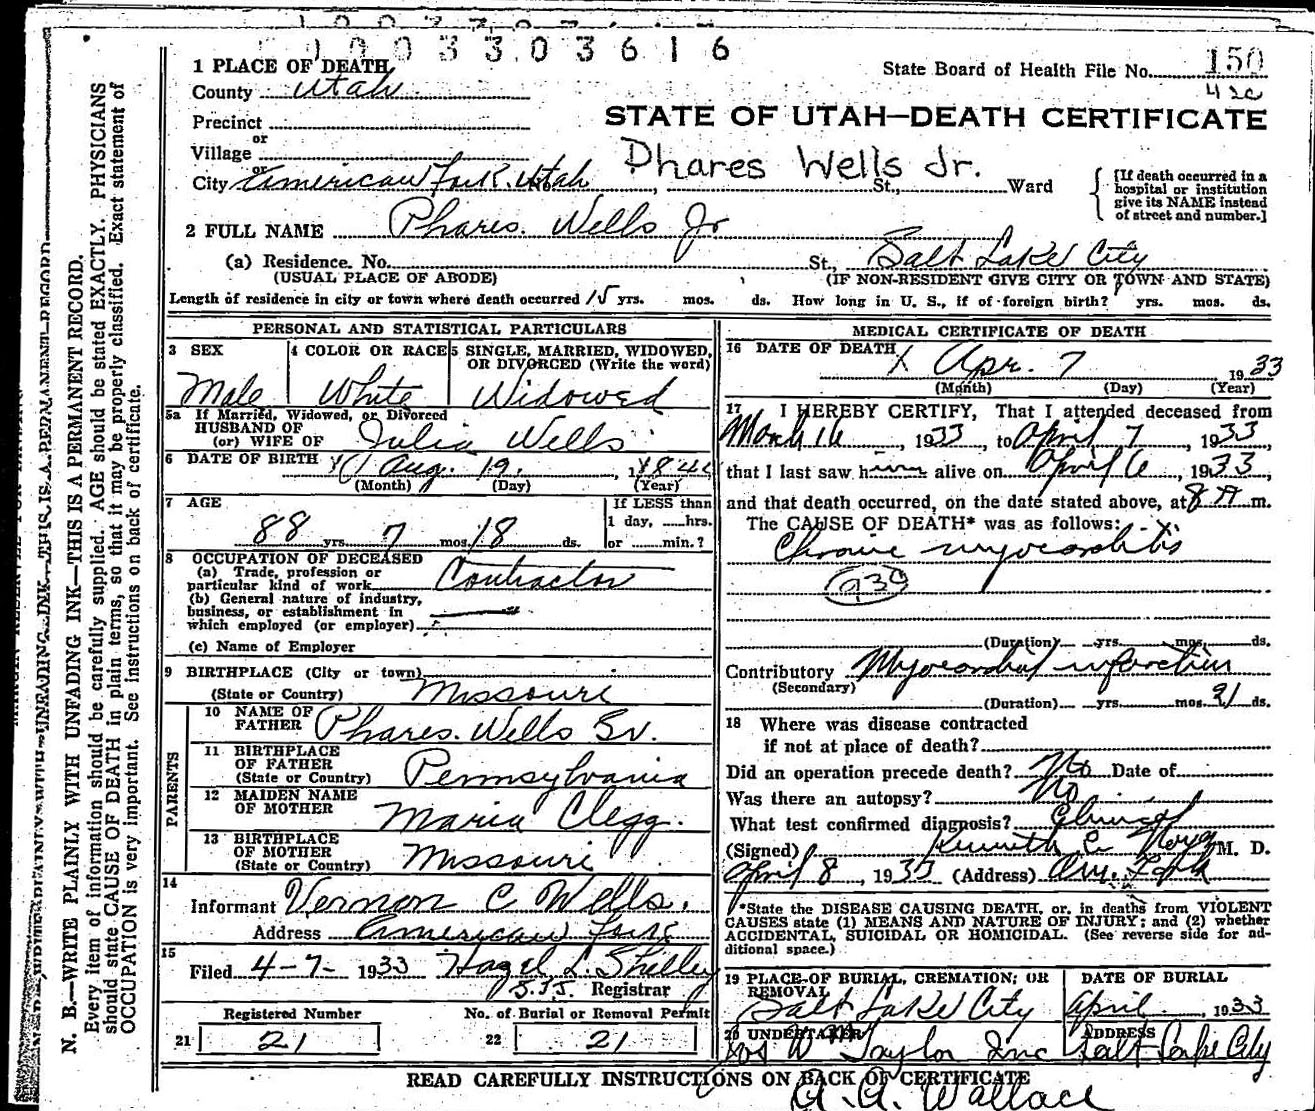 1003303616
1 PLACE OF DEATH
State Board of Health File No. 150
County Utah
42c
Precinct
STATE OF UTAH—DEATH CERTIFICATE
or
Village
Phares Wells Jr.
or
City American Fork, Utah, St., Ward
[If death occurred in a hospital or institution give its NAME instead of street and number.]
2 FULL NAME Phares. Wells Jr
(a) Residence. No. St., Salt Lake City
(USUAL PLACE OF ABODE) (IF NON-RESIDENT GIVE CITY OR TOWN AND STATE)
Length of residence in city or town where death occurred 15 yrs. mos. ds. How long in U. S., if of foreign birth? yrs. mos. ds.
PERSONAL AND STATISTICAL PARTICULARS
3 SEX 4 COLOR OR RACE 5 SINGLE, MARRIED, WIDOWED,
OR DIVORCED (Write the word)
Male White Widowed
5a If Married, Widowed, or Divorced
HUSBAND OF
(or) WIFE OF Julia Wells
6 DATE OF BIRTH Aug. 19, 1844
(Month) (Day) (Year)
7 AGE If LESS than
1 day, hrs.
88 yrs. 7 mos. 18 ds. or min.?
8 OCCUPATION OF DECEASED
(a) Trade, profession or
particular kind of work Contractor
(b) General nature of industry,
business, or establishment in
which employed (or employer)
(c) Name of Employer
9 BIRTHPLACE (City or town)
(State or Country) Missouri
PARENTS
10 NAME OF
FATHER Phares. Wells Sr.
11 BIRTHPLACE
OF FATHER
(State or Country) Pennsylvania
12 MAIDEN NAME
OF MOTHER Maria Clegg.
13 BIRTHPLACE
OF MOTHER
(State or Country) Missouri
14
Informant Vernon C Wells.
Address American Fork
15
Filed 4-7- 1933 Hazel L. Shelley
Registrar
Registered Number No. of Burial or Removal Permit
21 21 22 21
MEDICAL CERTIFICATE OF DEATH
16 DATE OF DEATH X Apr. 7 1933
(Month) (Day) (Year)
17 I HEREBY CERTIFY, That I attended deceased from
March 16, 1933, to April 7, 1933,
that I last saw him alive on April 6, 1933,
and that death occurred, on the date stated above, at 8 A m.
The CAUSE OF DEATH* was as follows:
Chronic myocarditis
93c
(Duration) yrs. mos. ds.
Contributory Myocardial infarction
(Secondary)
(Duration) yrs. mos. 21 ds.
18 Where was disease contracted
if not at place of death?
Did an operation precede death? No Date of
Was there an autopsy? No
What test confirmed diagnosis? Clinical
(Signed) Kenneth E Noyes M. D.
April 8, 1933 (Address) Am. Fork
*State the DISEASE CAUSING DEATH, or, in deaths from VIOLENT
CAUSES state (1) MEANS AND NATURE OF INJURY; and (2) whether
ACCIDENTAL, SUICIDAL OR HOMICIDAL. (See reverse side for ad-
ditional space.)
19 PLACE OF BURIAL, CREMATION; OR
REMOVAL
Salt Lake City
DATE OF BURIAL
April 1933
20 UNDERTAKER
Jos Wm Taylor Inc
ADDRESS
Salt Lake City
READ CAREFULLY INSTRUCTIONS ON BACK OF CERTIFICATE
A. A. Wallace
N. B.—WRITE PLAINLY WITH UNFADING INK—THIS IS A PERMANENT RECORD.
Every item of information should be carefully supplied. AGE should be stated EXACTLY. PHYSICIANS
should state CAUSE OF DEATH in plain terms, so that it may be properly classified. Exact statement of
OCCUPATION is very important. See instructions on back of certificate.